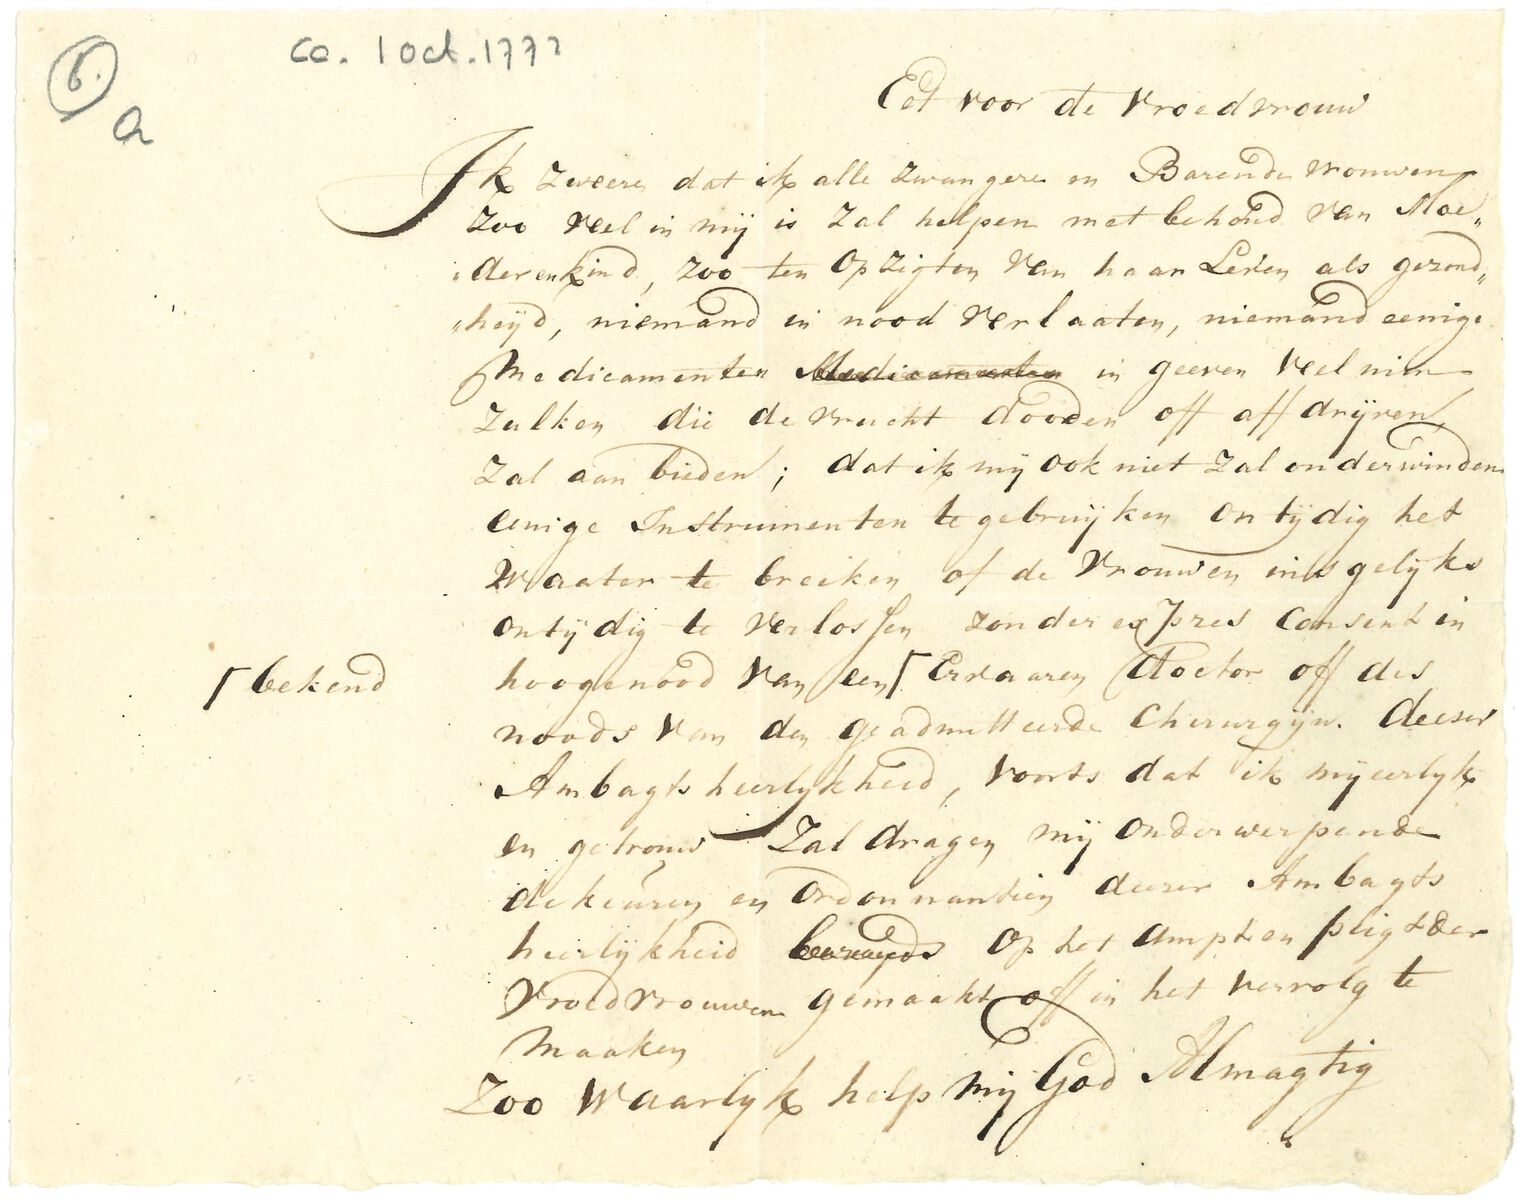 6.
a
ca. 1 oct. 1772
Eed voor de vroedvrouw
Ik Zweere dat ik alle zwangere en Barende vrouwen
zoo veel in mij is zal helpen met behoud van Moe„
„der en kind, zoo ten opzigten van haar Leven als gezond„
„heijd, niemand in nood verlaaten, niemand eenige
Medicamenten Medicamenten in geeven veel min
zulken die de vrucht dooden off aff drijven
zal aan bieden; dat ik mij ook niet zal onderwinden
eenige Instrumenten te gebruijken ontijdig het
Waater te breeken of de vrouwen insgelijks
ontijdig te verlossen zonder expres Consent in
hoogenood van een ⌈ Ervaaren doctor off des
⌈ bekend
noods van den geadmitteerde Chirurgijn deeser
Ambagtsheerlykheid, voorts dat ik mij eerlyk
en getrouw zal dragen mij onderwerpende
de keuren en ordonnantien deeser Ambagts
heerlijkheid op het ampt en pligt der
vroedvrouwen gemaakt off in het vervolg te
maaken
Zoo Waarlyk help mij God Almagtig